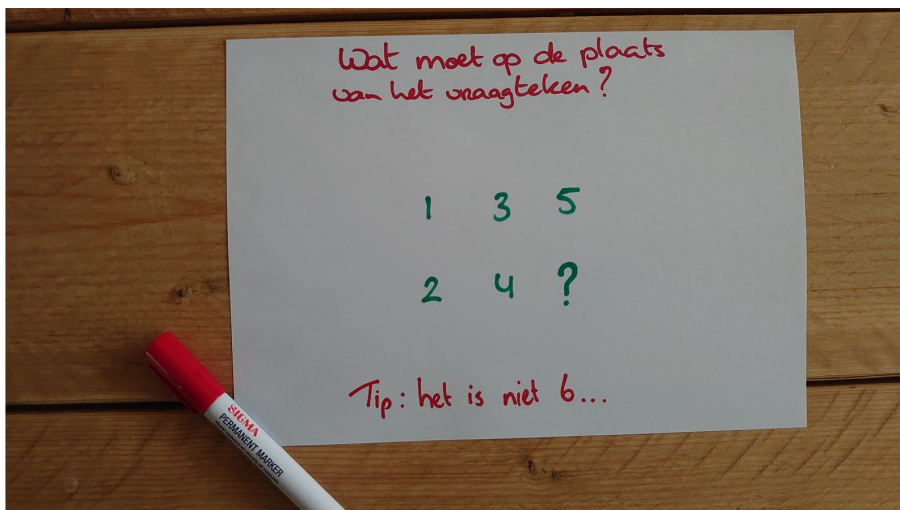 Wat moet op de plaats
van het vraagteken?
1 3 5
2 4 ?
Tip: het is niet 6...
SIGMA
PERMANENT MARKER